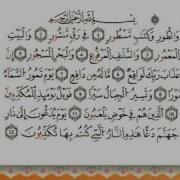 بِسْمِ اللَّهِ الرَّحْمَٰنِ الرَّحِيمِ
وَالطُّورِ ۝١ وَكِتَٰبٍ مَّسْطُورٍ ۝٢ فِى رَقٍّ مَّنشُورٍ ۝٣ وَالْبَيْتِ
الْمَعْمُورِ ۝٤ وَالسَّقْفِ الْمَرْفُوعِ ۝٥ وَالْبَحْرِ الْمَسْجُورِ ۝٦ إِنَّ
عَذَابَ رَبِّكَ لَوَٰقِعٌ ۝٧ مَّا لَهُۥ مِن دَافِعٍ ۝٨ يَوْمَ تَمُورُ السَّمَآءُ
مَوْرًا ۝٩ وَتَسِيرُ الْجِبَالُ سَيْرًا ۝١٠ فَوَيْلٌ يَوْمَئِذٍ لِّلْمُكَذِّبِينَ ۝١١
الَّذِينَ هُمْ فِى خَوْضٍ يَلْعَبُونَ ۝١٢ يَوْمَ يُدَعُّونَ إِلَىٰ نَارِ
جَهَنَّمَ دَعًّا ۝١٣ هَٰذِهِ النَّارُ الَّتِى كُنتُم بِهَا تُكَذِّبُونَ ۝١٤